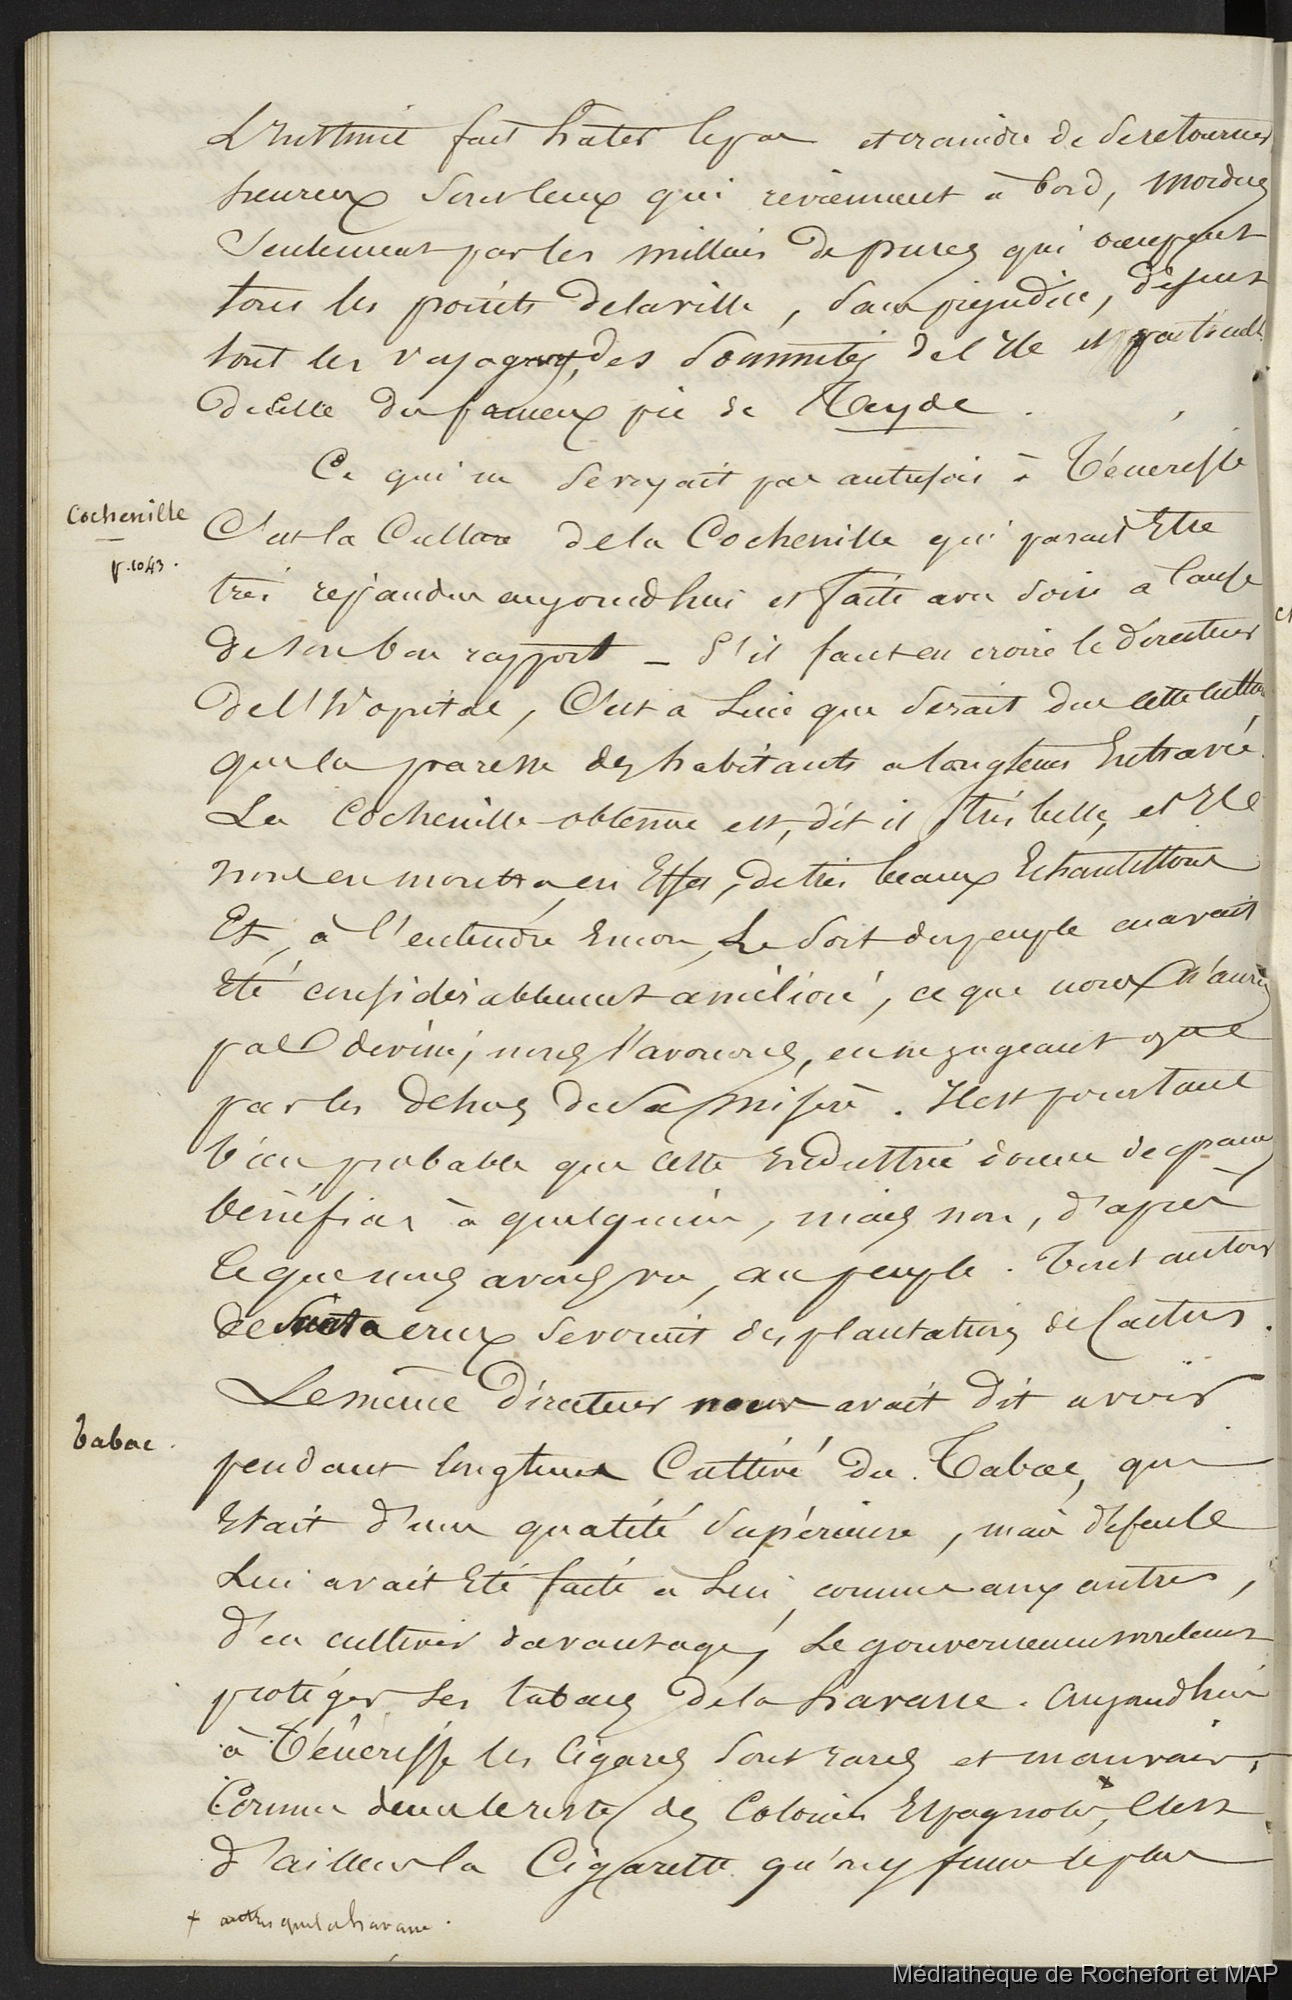 L'Intimité fait hater le pas et craindre de se retourner
heureux sont ceux qui reviennent à bord, mordus
seulement par les milliers de puces qui occupent
tous les points de la ville, sans préjudice, disent
tout les voyageurs, des sommités de l'Ile et particult
de celle du fameux pic de Teyde.
Ce qui ne se voyait pas autrefois à Ténériffe
Cochenille
p. 1043.
C'est la Culture de la Cochenille qui parait Etre
très répandue aujourd'hui et faite avec soin à cause
de son bon rapport _ S'il faut en croire le directeur
de l'hopital, C'est à Lui que serait due cette culture
que la paresse des habitants a longtems Entravée.
La Cochenille obtenue est, dit il, très belle, et Il
nous en montra, en Effet, de très beaux Echantillons
Et, à l'entendre Encor, Le sort du peuple en avait
Eté considérablement amélioré, ce que nous n'aurions
pas deviné, nous l'avouons, en ne jugeant que
par les dehors de sa misère. Il est pourtant
bien probable que cette Industrie donne de grands
bénéfices à quelqu'un, mais non, d'après
ce que nous avons vu, au peuple. Tout autour
de Santa crux se voient des plantations de Cactus.
Le même Directeur nous avait dit avoir
Tabac.
pendant longtems Cultivé du Tabac, qui
Etait d'une qualité Supérieure, mais défense
Lui avait Eté faite à Lui, comme aux autres,
d'en cultiver davantage, Le gouvernement voulant
protéger ses tabacs de la havane. Aujourd'hui
à Ténériffe les Cigares sont rares et mauvais,
Comme dans le reste des Colonies Espagnoles*, C'est
d'ailleurs la Cigarette qu'on y fume le plus
* autres que la havane.
Médiathèque de Rochefort et MAP